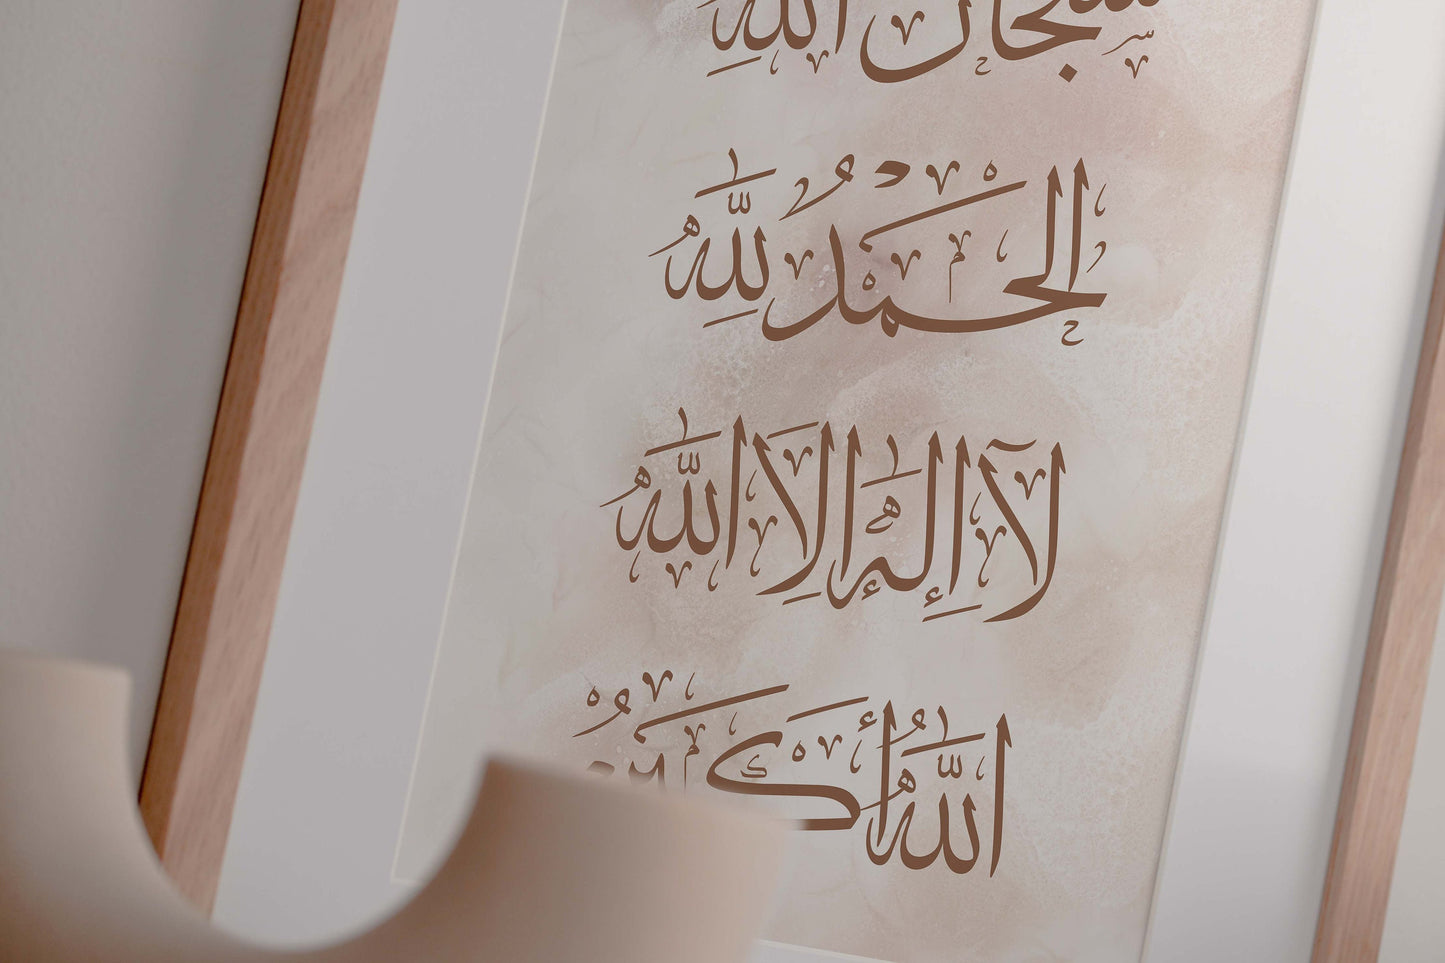 سُبْحَانَ اللّٰهِ
اَلْحَمْدُ لِلّٰهِ
لَآ اِلٰهَ اِلَّا اللّٰهُ
اَللّٰهُ أَكْبَرُ